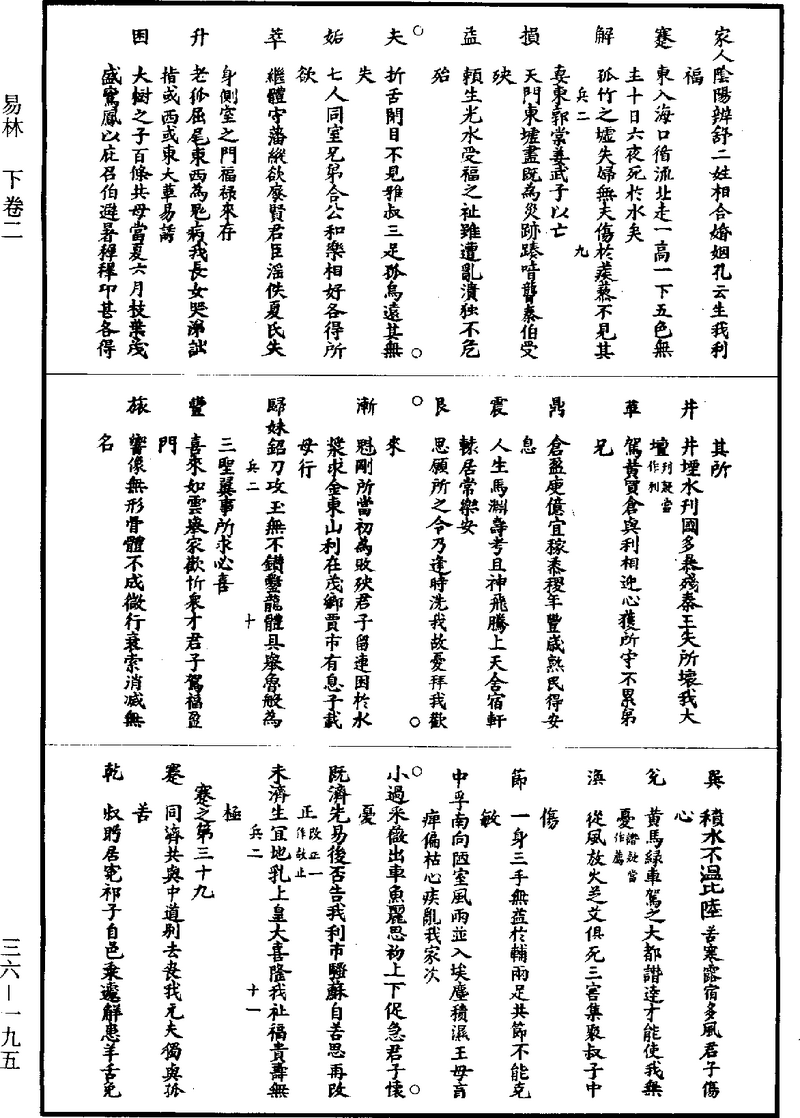 易林　下卷二
三六—一九五
家人陰陽辨舒二姓相合婚姻孔云生我利
福
蹇　東入海口循流北走一高一下五色無
主十日六夜死於水矣
解　孤竹之墟失婦無夫傷於蒺藜不見其
妻東郭棠姜武子以亡
兵二　九
損　天門東墟盡既為災跡踦喑聾秦伯受
殃
益　賴生光水受福之祉雖遭亂潰独不危
殆
夬　折舌閉目不見雅叔三足孤烏遠其無
失
姤　七人同室兄弟合公和樂相好各得所
欲
萃　繼體守藩縱欲廢賢君臣淫佚夏氏失
身側室之門福祿來存
升　老狐屈尾東西為鬼病我長女哭涕詘
指或西或東大華易誘
困　大樹之子百條共母當夏六月枝葉茂
盛鸞鳳以庇召伯避暑翩翩偃仰甚各得
其所
井　井堙水刊國多暴殘秦王失所壞我大
壇列疑當作刊
革　駕黃買倉與利相迎心獲所守不累弟
兄
鼎　倉盈庾億宜稼黍稷年豐歲熟民得安
息
震　人生馬淵壽考且神飛騰上天舍宿軒
轅居常樂安
艮　思願所之今乃逢時洗我故憂拜我歡
來
漸　魁剛所當初為敗殃君子留連困於水
漿求金東山利在茂鄉賈市有息子載
母行
歸妹鉊刀攻玉無不鑽鑿龍體具舉魯般為
兵二　十
三聖翼事所求必喜
豐　喜來如雲舉家歡忻眾才君子駕福盈
門
旅　響像無形骨體不成微行衰索消滅無
名
巽　積水不溫北陸苦寒露宿多風君子傷
心
兌　黃馬綠車駕之大都讚達才能使我無
憂
渙　從風放火芝艾俱死三害集聚叔子中
傷
節　一身三手無益於輔兩足共節不能克
敏
中孚南向陋室風雨並入埃塵積濕王母盲
痺偏枯心疾亂我家次
小過采薇出車魚麗思初上下促急君子懷
憂
既濟先易後否告我利市騷蘇自苦思再改
正改正一作故止
未濟生宜地乳上皇大喜隆我祉福貴壽無
兵二　十一
極
蹇之第三十九
蹇　同濟共輿中道別去喪我元夫獨與孤
苦
乾　叔肸居冤祁子自邑乘遽解患羊舌免